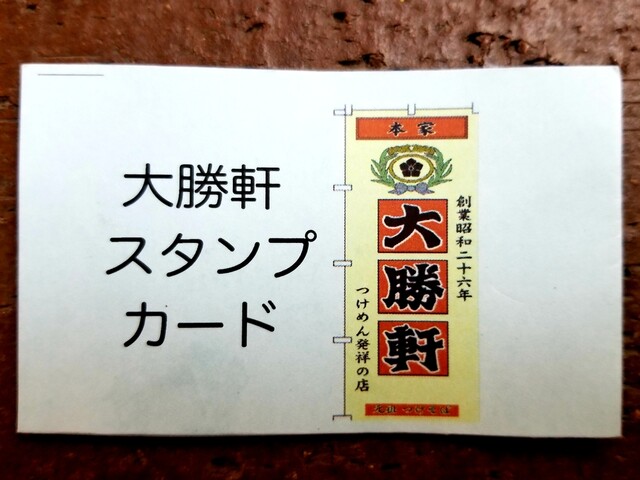 大勝軒
スタンプ
カード
本家
大勝軒
創業昭和二十六年
つけめん発祥の店